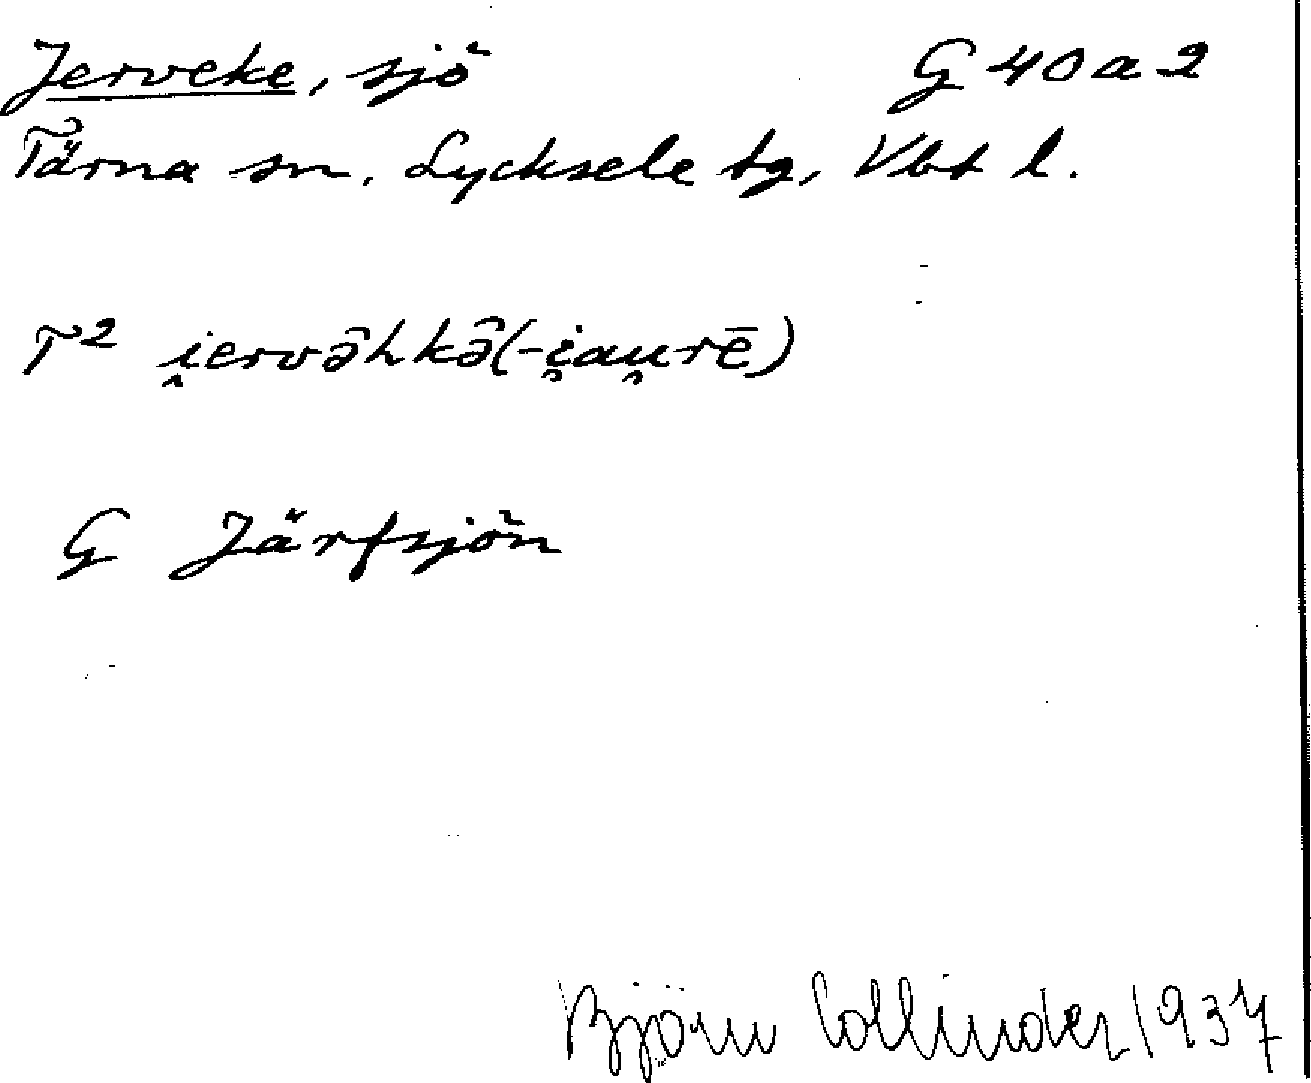 Jerveke, sjö G 40 a 2
Tärna sn. Lycksele tg, Vbt l.
T² i̯ervə̂hkə̂(-i̯au̯rē)
G Järfsjön
Björn Collinder 1937